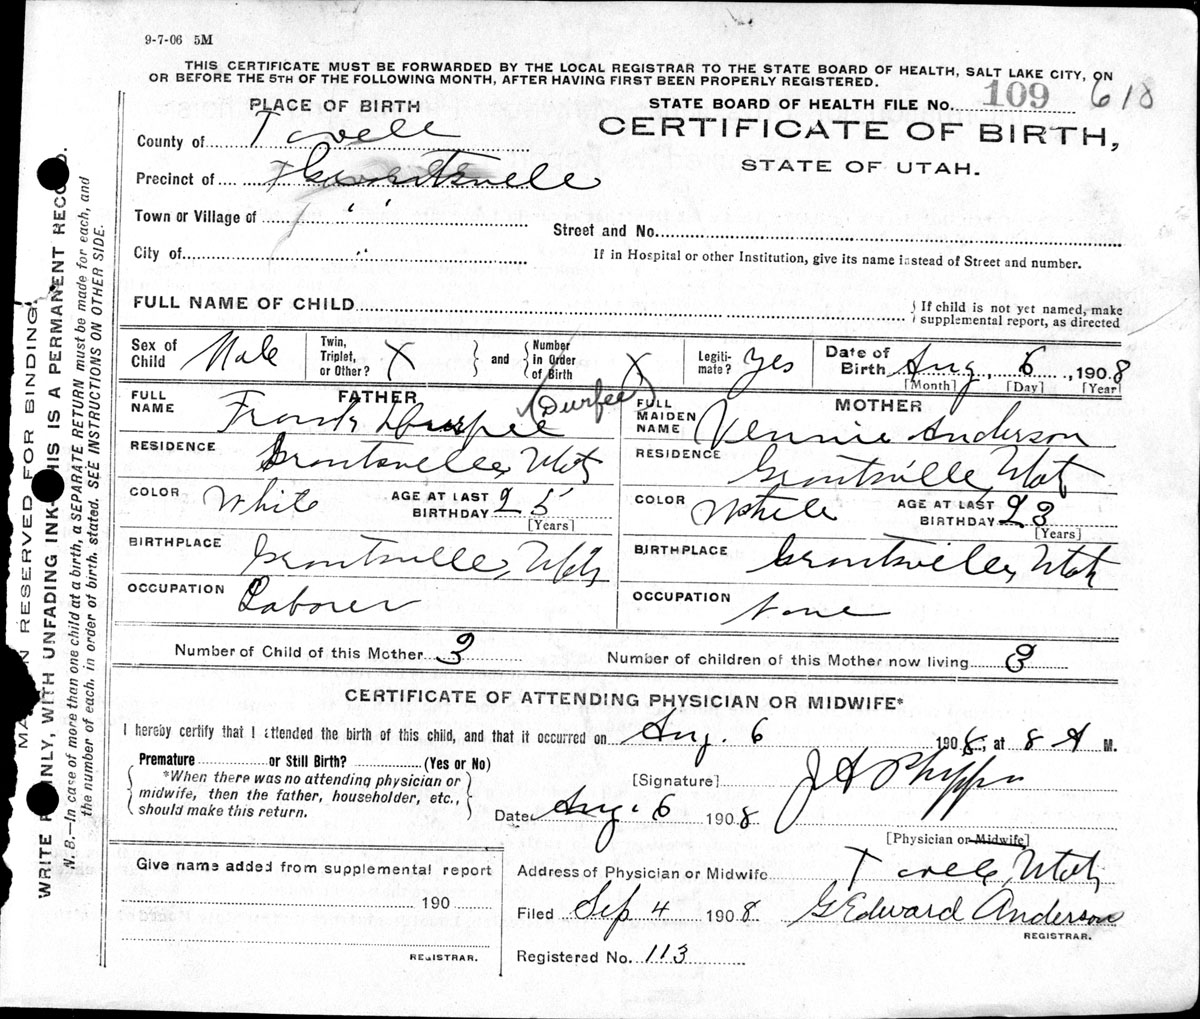 9-7-06 5M
THIS CERTIFICATE MUST BE FORWARDED BY THE LOCAL REGISTRAR TO THE STATE BOARD OF HEALTH, SALT LAKE CITY, ON
OR BEFORE THE 5TH OF THE FOLLOWING MONTH, AFTER HAVING FIRST BEEN PROPERLY REGISTERED.
PLACE OF BIRTH
STATE BOARD OF HEALTH FILE No. 109 618
County of Tooele
CERTIFICATE OF BIRTH,
STATE OF UTAH.
Precinct of Grantsville
Town or Village of " "
Street and No.
City of "
If in Hospital or other Institution, give its name instead of Street and number.
FULL NAME OF CHILD
If child is not yet named, make
supplemental report, as directed
Sex of Child Male
Twin, Triplet, or Other? X
and Number in Order of Birth X
Legitimate? Yes
Date of Birth Aug 6, 1908
[Month] [Day] [Year]
FATHER
FULL NAME Frank (Durfee)
RESIDENCE Grantsville, Utah
COLOR White
AGE AT LAST BIRTHDAY 25
[Years]
BIRTHPLACE Grantsville, Utah
OCCUPATION Laborer
MOTHER
FULL MAIDEN NAME Vennie Anderson
RESIDENCE Grantsville, Utah
COLOR White
AGE AT LAST BIRTHDAY 23
[Years]
BIRTHPLACE Grantsville, Utah
OCCUPATION None
Number of Child of this Mother 3
Number of children of this Mother now living 3
CERTIFICATE OF ATTENDING PHYSICIAN OR MIDWIFE*
I hereby certify that I attended the birth of this child, and that it occurred on Aug. 6 1908, at 8 A M.
Premature or Still Birth? (Yes or No)
*When there was no attending physician or
midwife, then the father, householder, etc.,
should make this return.
[Signature] J A Phipps
Date Aug. 6 1908
[Physician or Midwife]
Give name added from supplemental report
190
REGISTRAR.
Address of Physician or Midwife Tooele, Utah
Filed Sep 4 1908 G Edward Anderson
REGISTRAR.
Registered No. 113
MARGIN RESERVED FOR BINDING.
WRITE PLAINLY, WITH UNFADING INK—THIS IS A PERMANENT RECORD.
N. B.—In case of more than one child at a birth, a SEPARATE RETURN must be made for each, and
the number of each, in order of birth, stated. SEE INSTRUCTIONS ON OTHER SIDE.